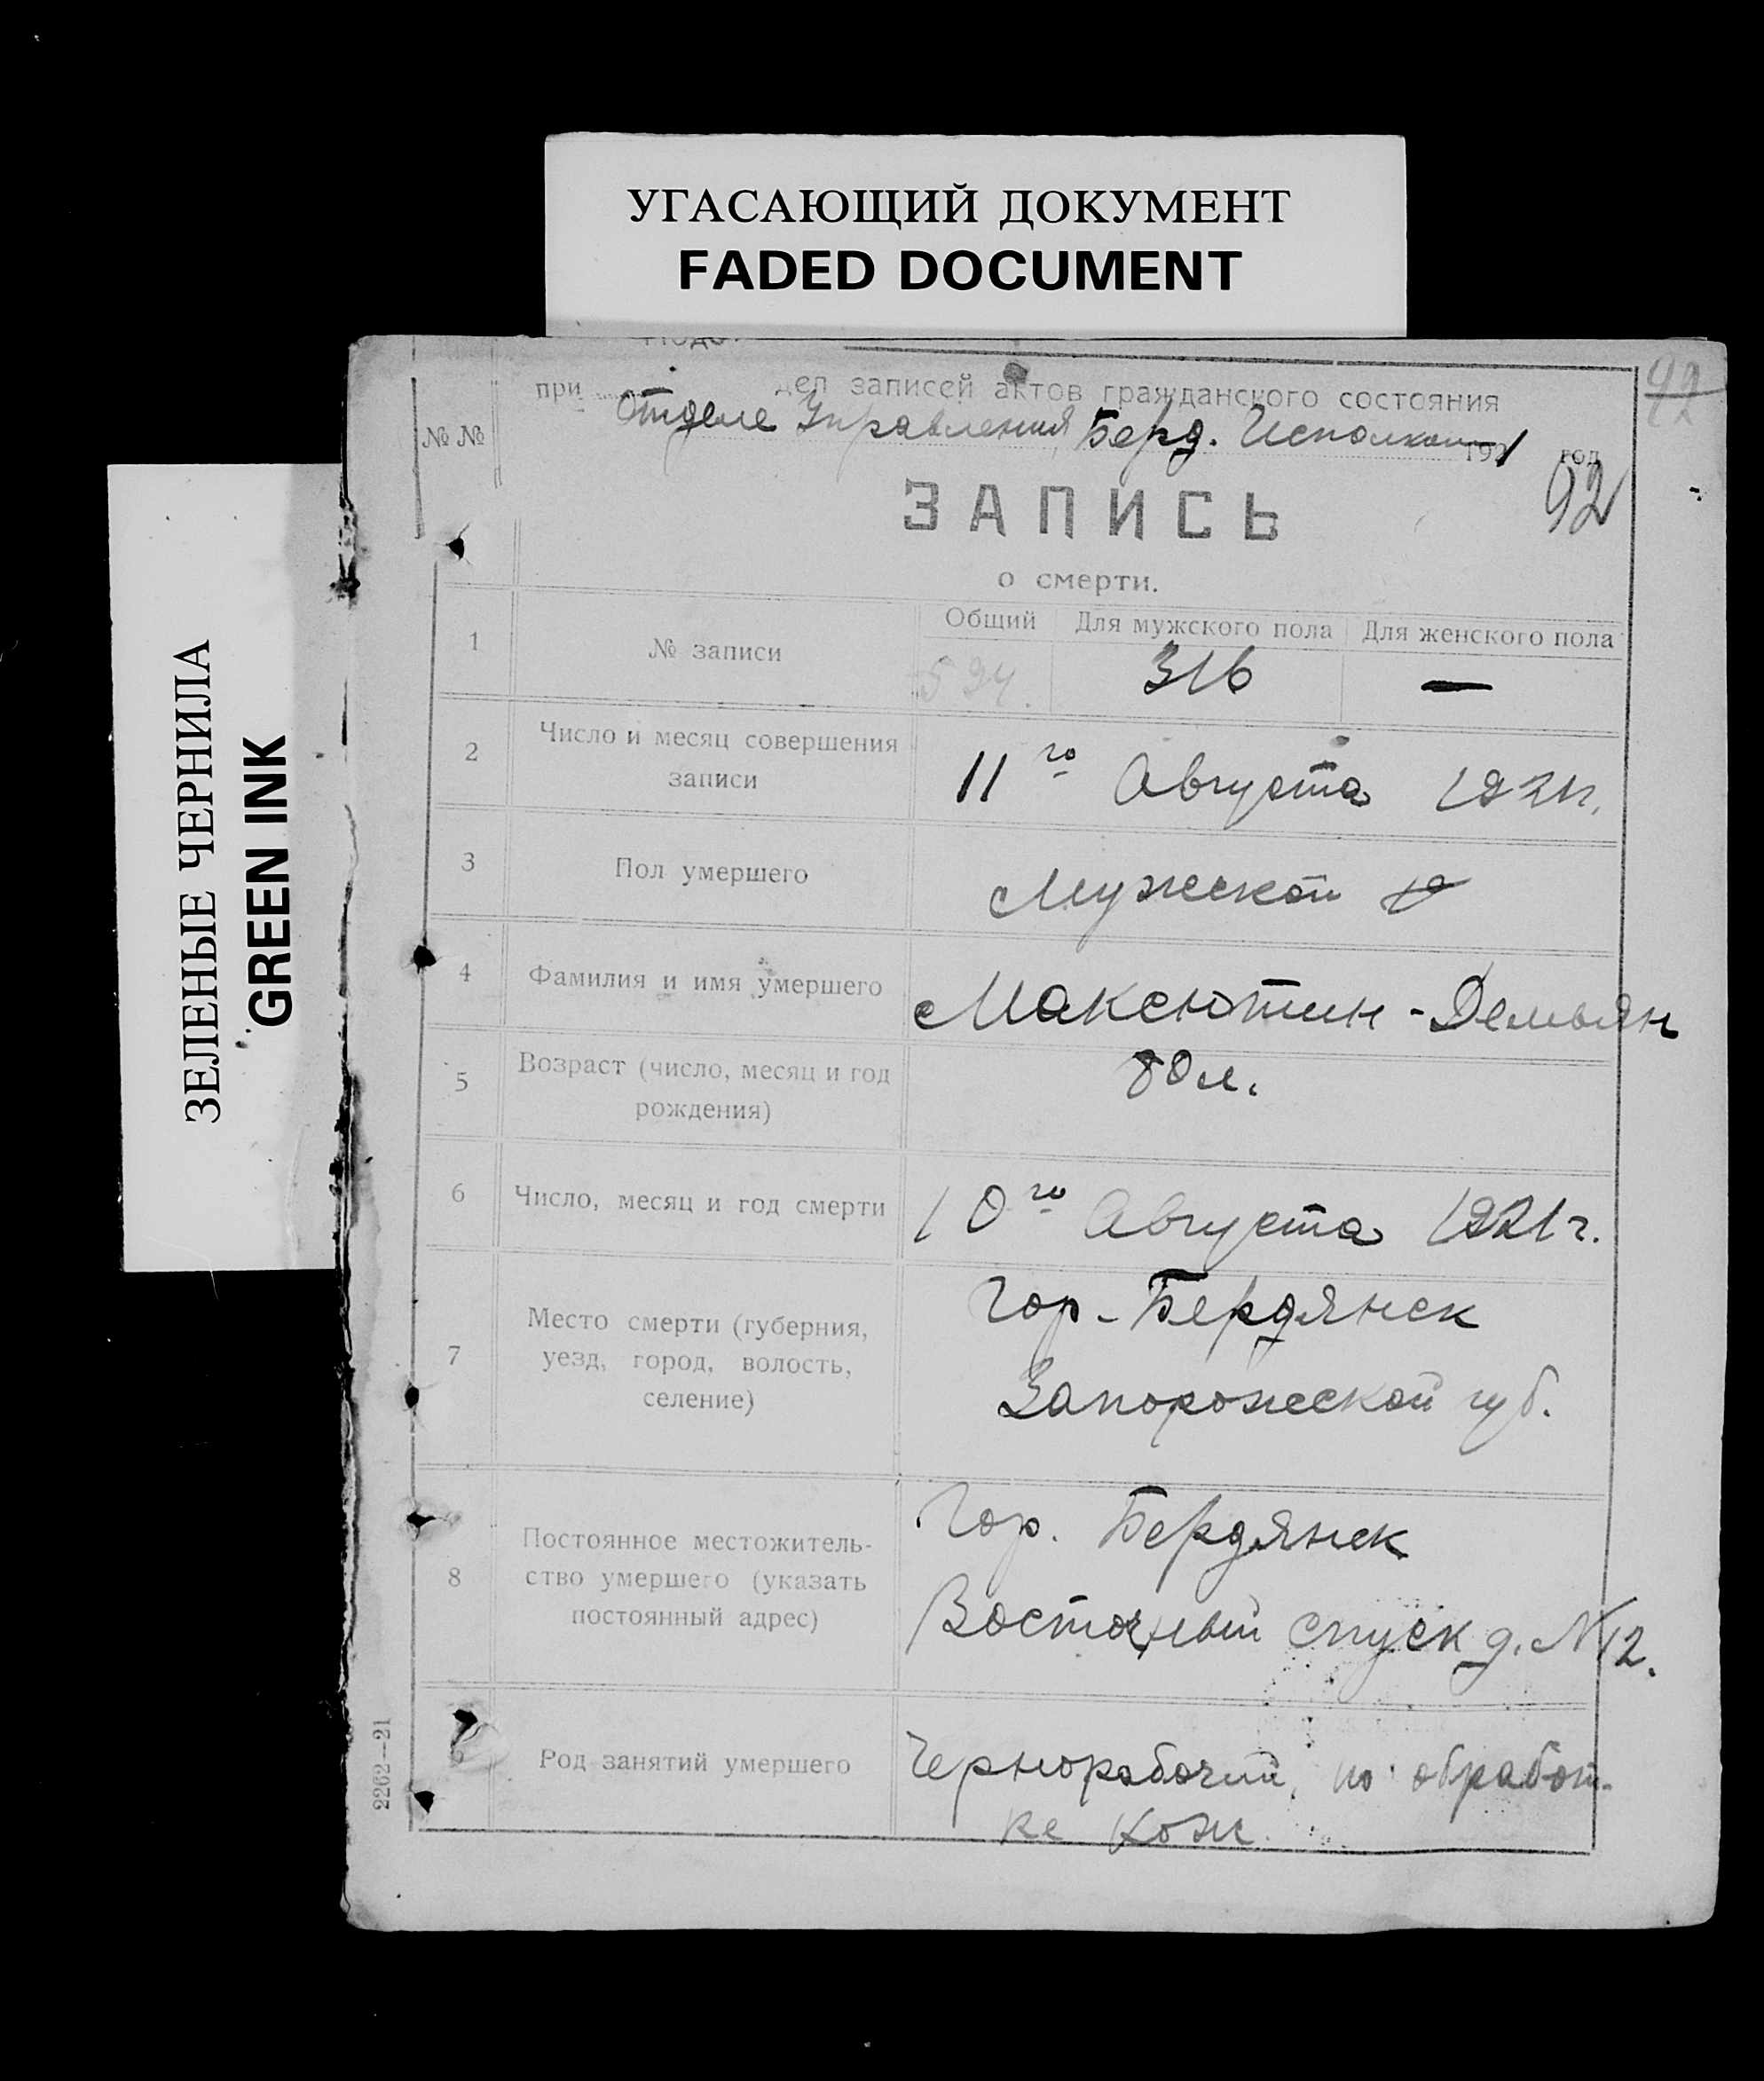 УГАСАЮЩИЙ ДОКУМЕНТ
FADED DOCUMENT
ЗЕЛЕНЫЕ ЧЕРНИЛА
GREEN INK
при дел записей актов гражданского состояния
Отделе Управления Берд. Исполком
№ № 1921 год
92
ЗАПИСЬ
о смерти.
Общий Для мужского пола Для женского пола
1 № записи 316 —
2 Число и месяц совершения
записи
11го Августа 1921г.
3 Пол умершего Мужской
4 Фамилия и имя умершего Максютин - Демьян
5 Возраст (число, месяц и год
рождения)
80 л.
6 Число, месяц и год смерти 10го Августа 1921 г.
7 Место смерти (губерния,
уезд, город, волость,
селение)
Гор - Бердянск
Запорожской губ.
8 Постоянное местожитель-
ство умершего (указать
постоянный адрес)
Гор. Бердянск
Восточный спуск д. № 12.
9 Род занятий умершего Чернорабочий, по обработ-
ке кож.
2262—21